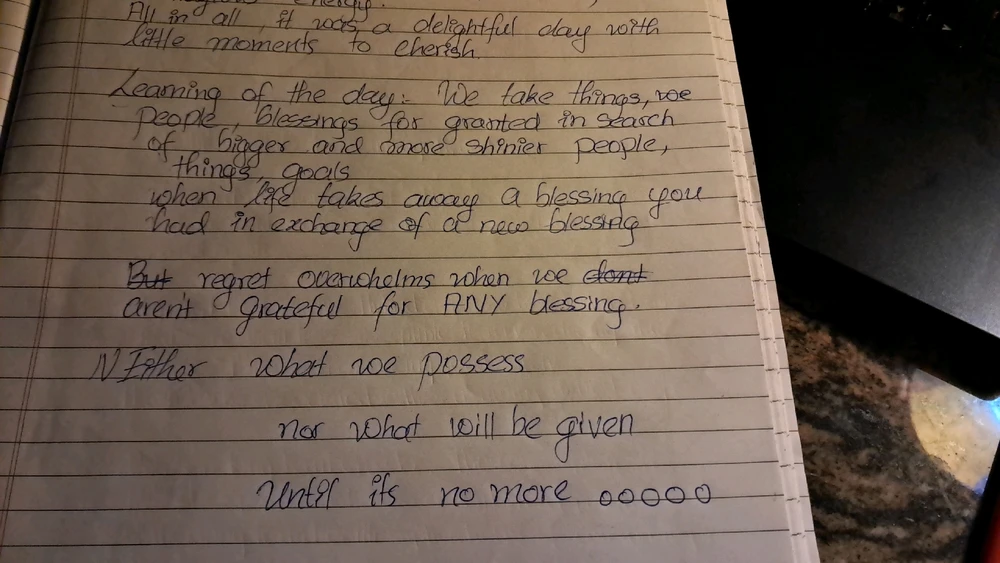 energy.
All in all, it was a delightful day with
little moments to cherish.
Learning of the day:- We take things, we
people, blessings for granted in search
of bigger and more shinier people,
things, goals
when life takes away a blessing you
had in exchange of a new blessing
But regret overwhelms when we dont
aren't grateful for ANY blessing.
NEither what we possess
nor what will be given
Until its no more ooooo